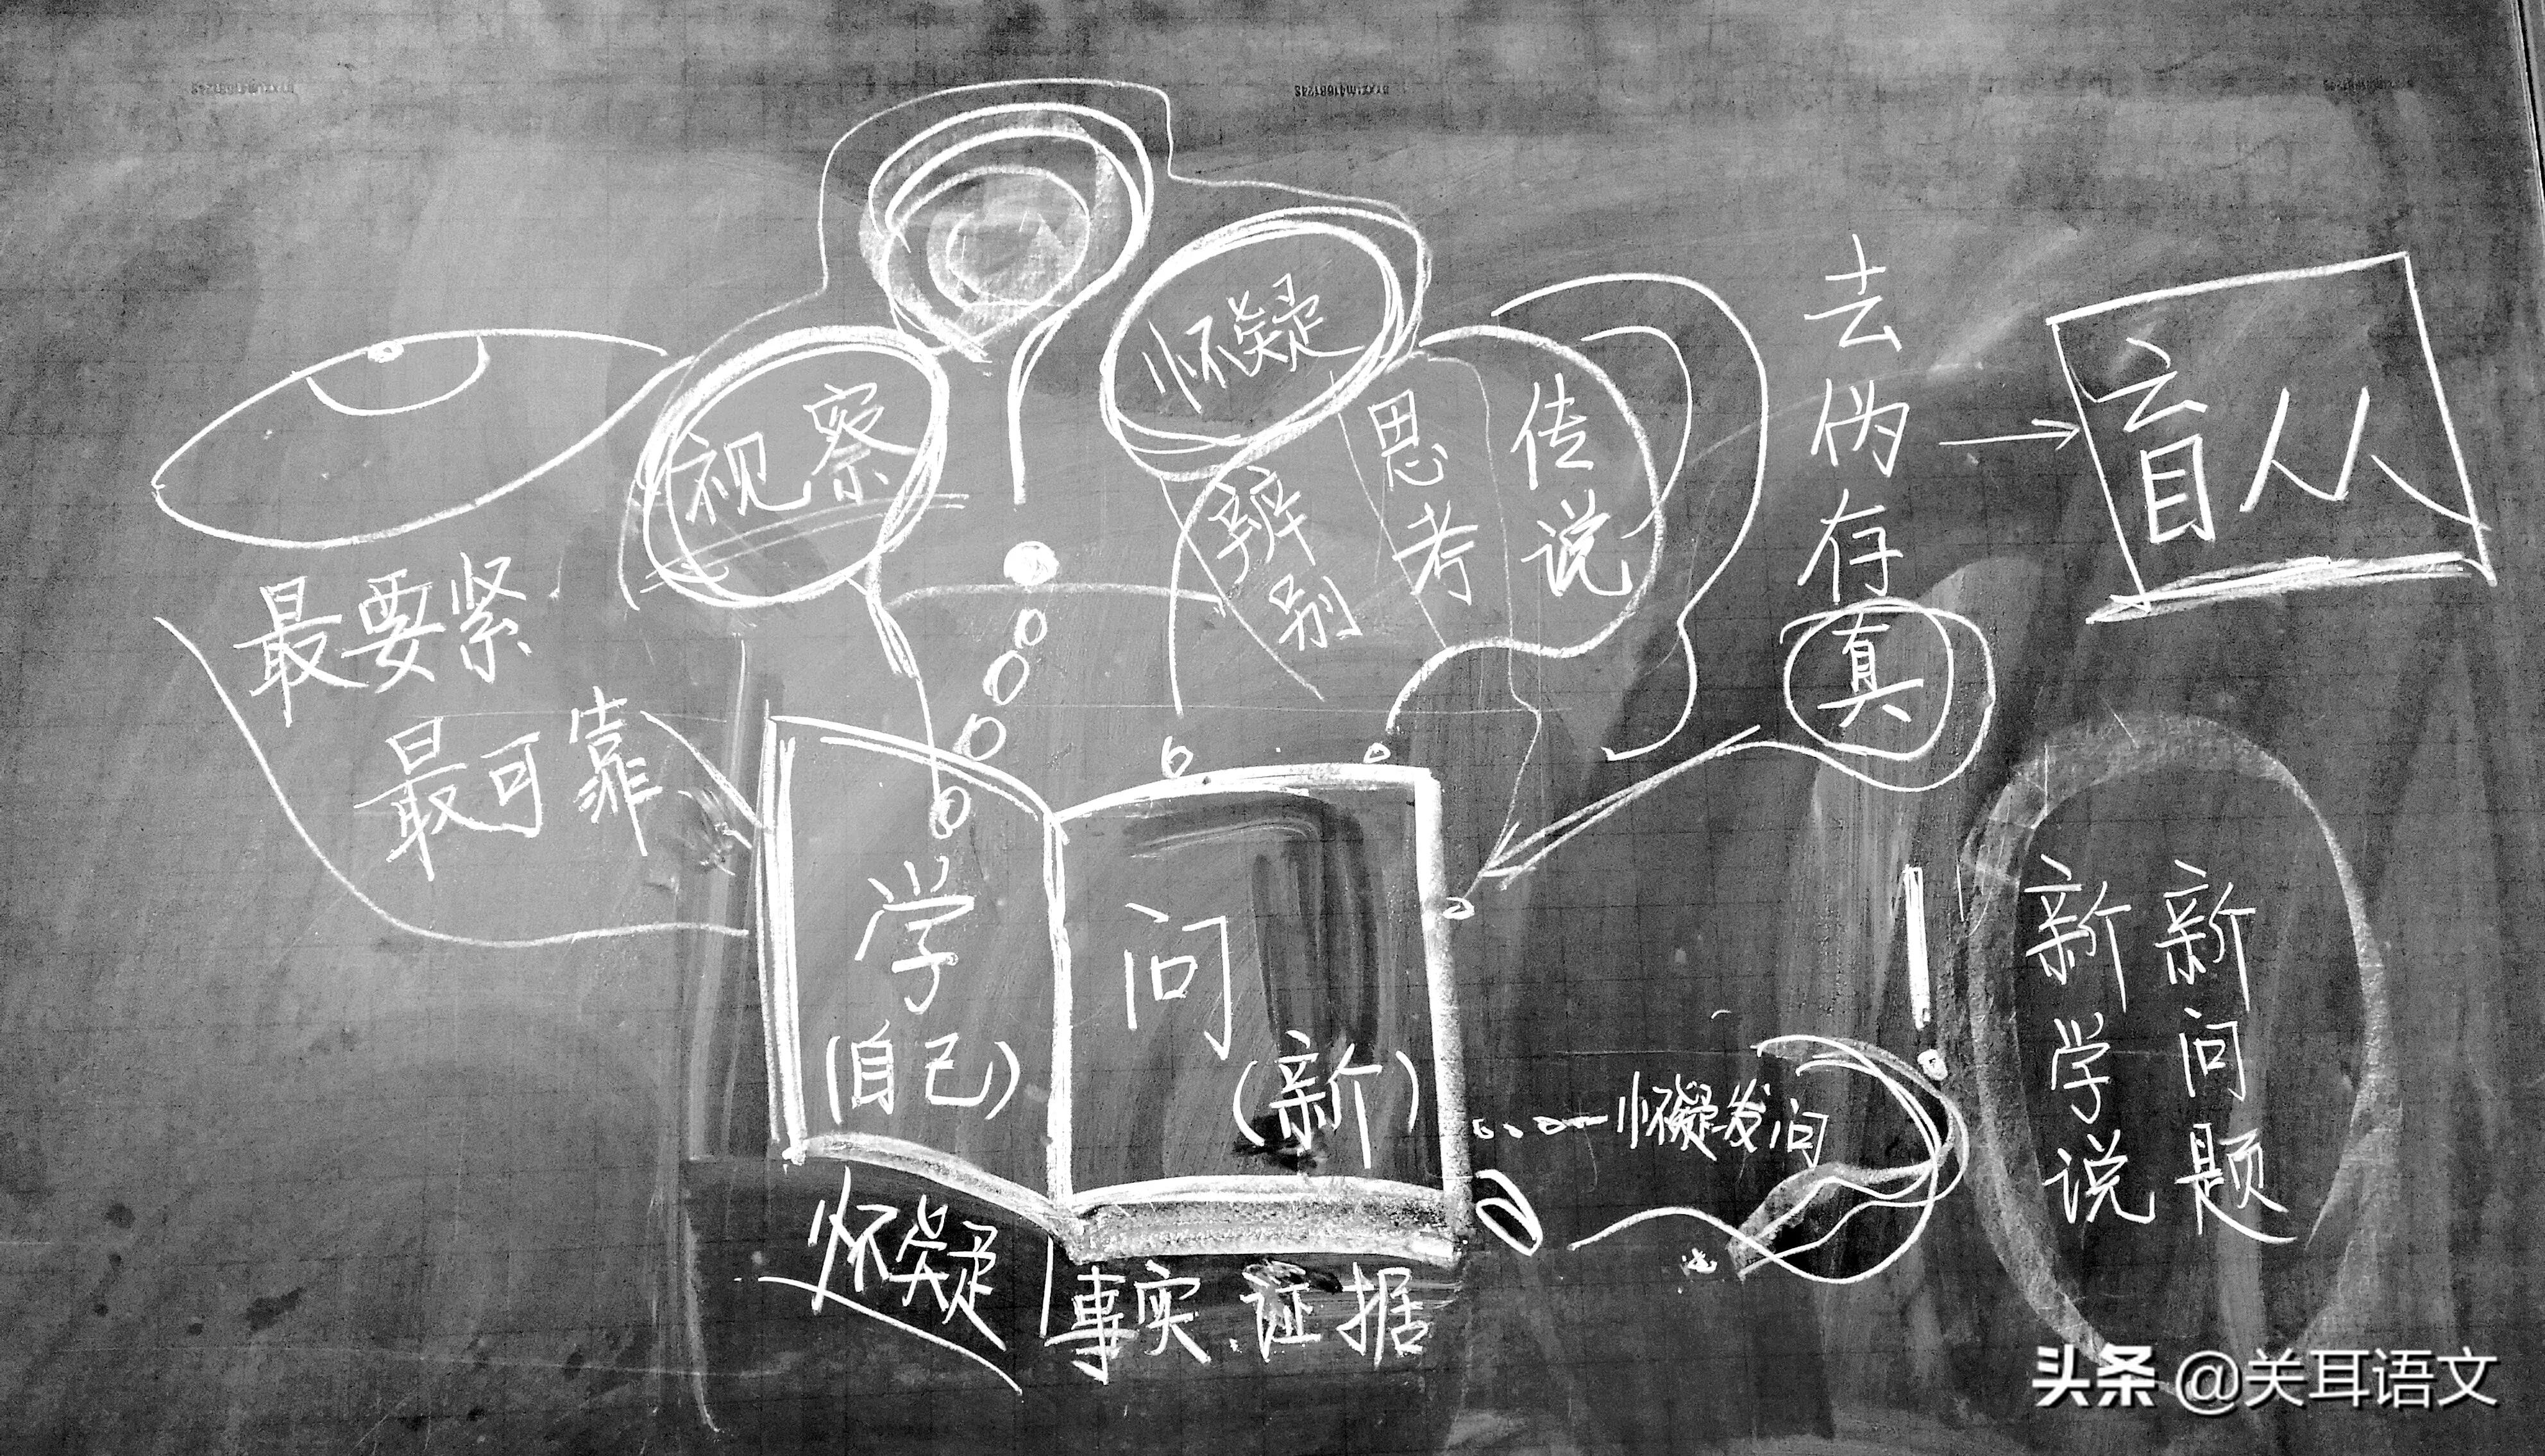 怀疑
视察
辨别
思考
传说
去伪存真
盲从
最要紧
最可靠
学
(自己)
问
(新)
怀疑发问
新学说
新问题
怀疑
事实、证据
头条 @关耳语文